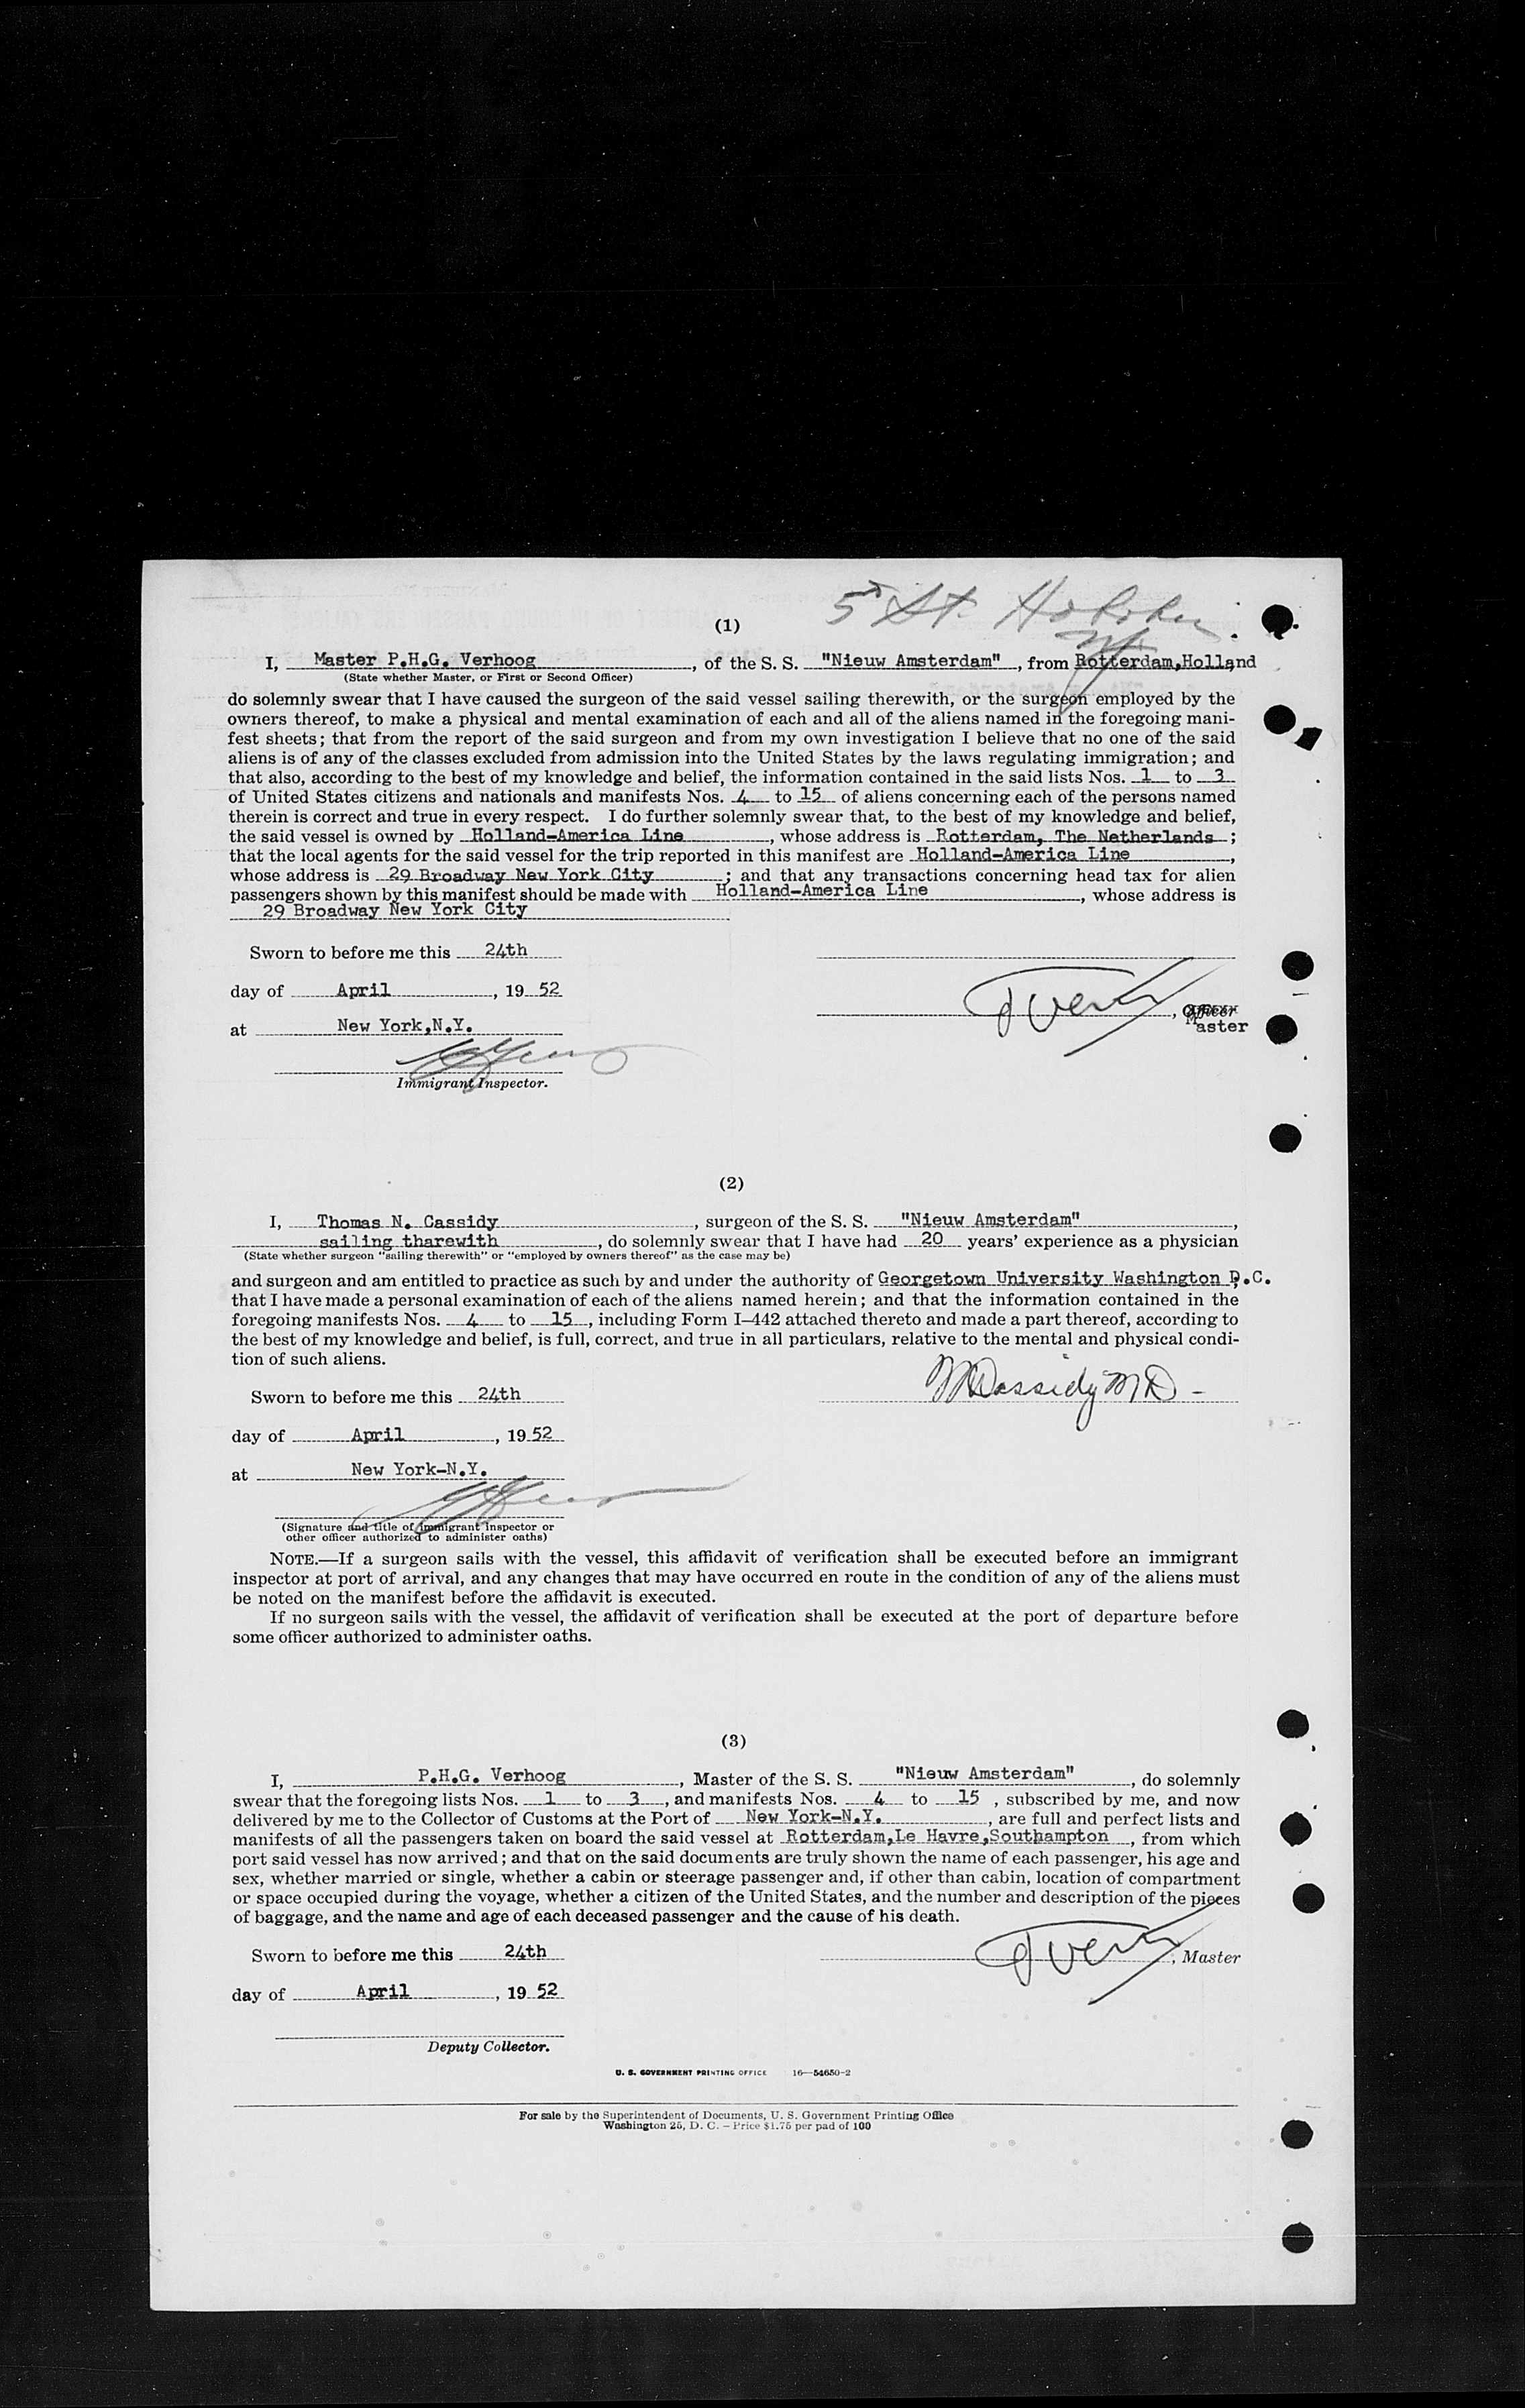 5th St. Hoboken
NJ
(1)
I, Master P.H.G. Verhoog, of the S. S. "Nieuw Amsterdam", from Rotterdam,Holland
(State whether Master, or First or Second Officer)
do solemnly swear that I have caused the surgeon of the said vessel sailing therewith, or the surgeon employed by the
owners thereof, to make a physical and mental examination of each and all of the aliens named in the foregoing mani-
fest sheets; that from the report of the said surgeon and from my own investigation I believe that no one of the said
aliens is of any of the classes excluded from admission into the United States by the laws regulating immigration; and
that also, according to the best of my knowledge and belief, the information contained in the said lists Nos. 1 to 3
of United States citizens and nationals and manifests Nos. 4 to 15 of aliens concerning each of the persons named
therein is correct and true in every respect. I do further solemnly swear that, to the best of my knowledge and belief,
the said vessel is owned by Holland-America Line, whose address is Rotterdam, The Netherlands;
that the local agents for the said vessel for the trip reported in this manifest are Holland-America Line,
whose address is 29 Broadway New York City; and that any transactions concerning head tax for alien
passengers shown by this manifest should be made with Holland-America Line, whose address is
29 Broadway New York City
Sworn to before me this 24th
day of April, 19 52
, Officer
at New York,N.Y.
Master
Immigrant Inspector.
(2)
I, Thomas N. Cassidy, surgeon of the S. S. "Nieuw Amsterdam",
sailing tharewith, do solemnly swear that I have had 20 years' experience as a physician
(State whether surgeon "sailing therewith" or "employed by owners thereof" as the case may be)
and surgeon and am entitled to practice as such by and under the authority of Georgetown University Washington D.C.;
that I have made a personal examination of each of the aliens named herein; and that the information contained in the
foregoing manifests Nos. 4 to 15, including Form I-442 attached thereto and made a part thereof, according to
the best of my knowledge and belief, is full, correct, and true in all particulars, relative to the mental and physical condi-
tion of such aliens.
Cassidy MD -
Sworn to before me this 24th
day of April, 19 52
at New York-N.Y.
(Signature and title of immigrant inspector or
other officer authorized to administer oaths)
NOTE.—If a surgeon sails with the vessel, this affidavit of verification shall be executed before an immigrant
inspector at port of arrival, and any changes that may have occurred en route in the condition of any of the aliens must
be noted on the manifest before the affidavit is executed.
If no surgeon sails with the vessel, the affidavit of verification shall be executed at the port of departure before
some officer authorized to administer oaths.
(3)
I, P.H.G. Verhoog, Master of the S. S. "Nieuw Amsterdam", do solemnly
swear that the foregoing lists Nos. 1 to 3, and manifests Nos. 4 to 15, subscribed by me, and now
delivered by me to the Collector of Customs at the Port of New York-N.Y., are full and perfect lists and
manifests of all the passengers taken on board the said vessel at Rotterdam,Le Havre,Southampton, from which
port said vessel has now arrived; and that on the said documents are truly shown the name of each passenger, his age and
sex, whether married or single, whether a cabin or steerage passenger and, if other than cabin, location of compartment
or space occupied during the voyage, whether a citizen of the United States, and the number and description of the pieces
of baggage, and the name and age of each deceased passenger and the cause of his death.
Sworn to before me this 24th
, Master
day of April, 19 52
Deputy Collector.
U. S. GOVERNMENT PRINTING OFFICE 16—54650-2
For sale by the Superintendent of Documents, U. S. Government Printing Office
Washington 25, D. C. - Price $1.75 per pad of 100